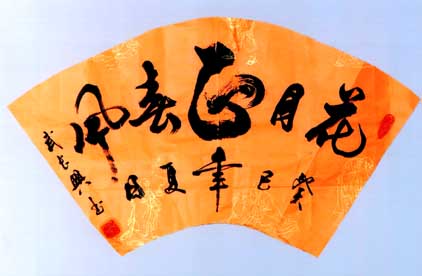 花月正春風
癸巳年夏日
武興书